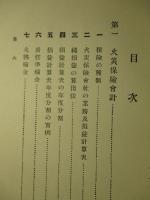 目次
第一 火災保險會計
一 保險の種類
二 火災保險會社の業務及損益計算表
三 純損益の算出法
四 損益計算表の年度分割
五 損益計算表年度分割の實例
六 責任準備金
七 支拂備金
目次